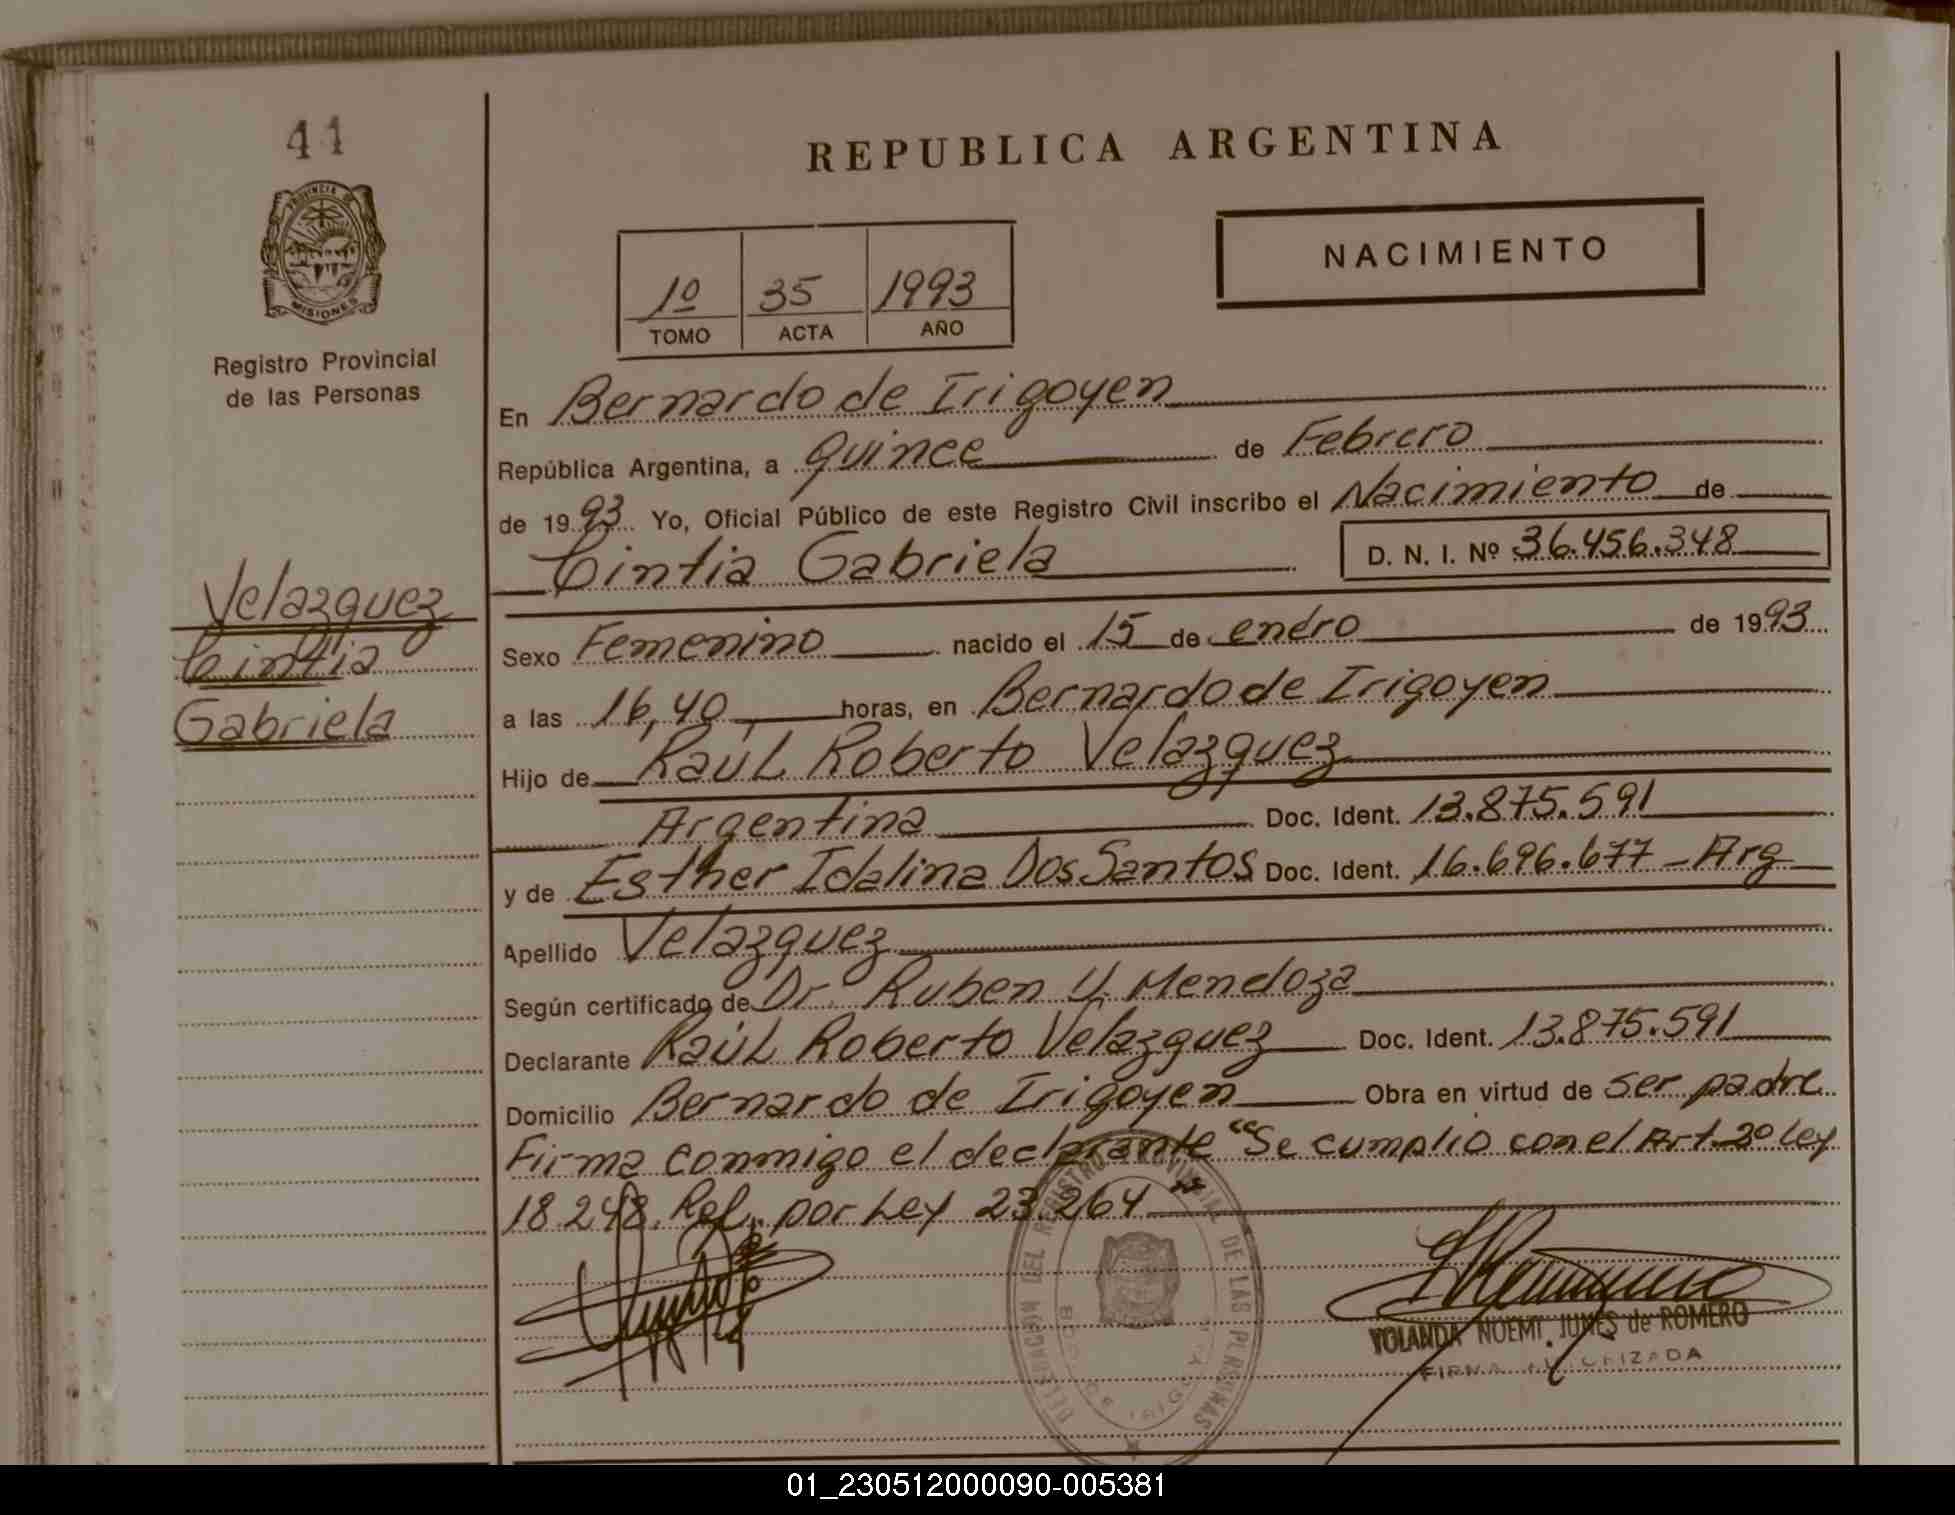 41
PROVINCIA DE
MISIONES
Registro Provincial
de las Personas
Velazquez
Cintia
Gabriela
REPUBLICA ARGENTINA
NACIMIENTO
1º 35 1993
TOMO ACTA AÑO
En Bernardo de Irigoyen
República Argentina, a quince de Febrero
de 1993 Yo, Oficial Público de este Registro Civil inscribo el Nacimiento de
Cintia Gabriela D. N. I. Nº 36.456.348
Sexo Femenino nacido el 15 de enero de 1993
a las 16,40 horas, en Bernardo de Irigoyen
Hijo de Raúl Roberto Velazquez
Argentina Doc. Ident. 13.875.591
y de Esther Idalina Dos Santos Doc. Ident. 16.696.677 - Arg
Apellido Velazquez
Según certificado de Dr. Ruben U. Mendoza
Declarante Raúl Roberto Velazquez Doc. Ident. 13.875.591
Domicilio Bernardo de Irigoyen Obra en virtud de ser padre
Firma conmigo el declarante "Se cumplio con el Art. 2º Ley
18.248. Ref. por Ley 23.264"
DEL REGISTRO PROVINCIAL DE LAS PERSONAS
YOLANDA NOEMI JUNES de ROMERO
FIRMA AUTORIZADA
01_230512000090-005381